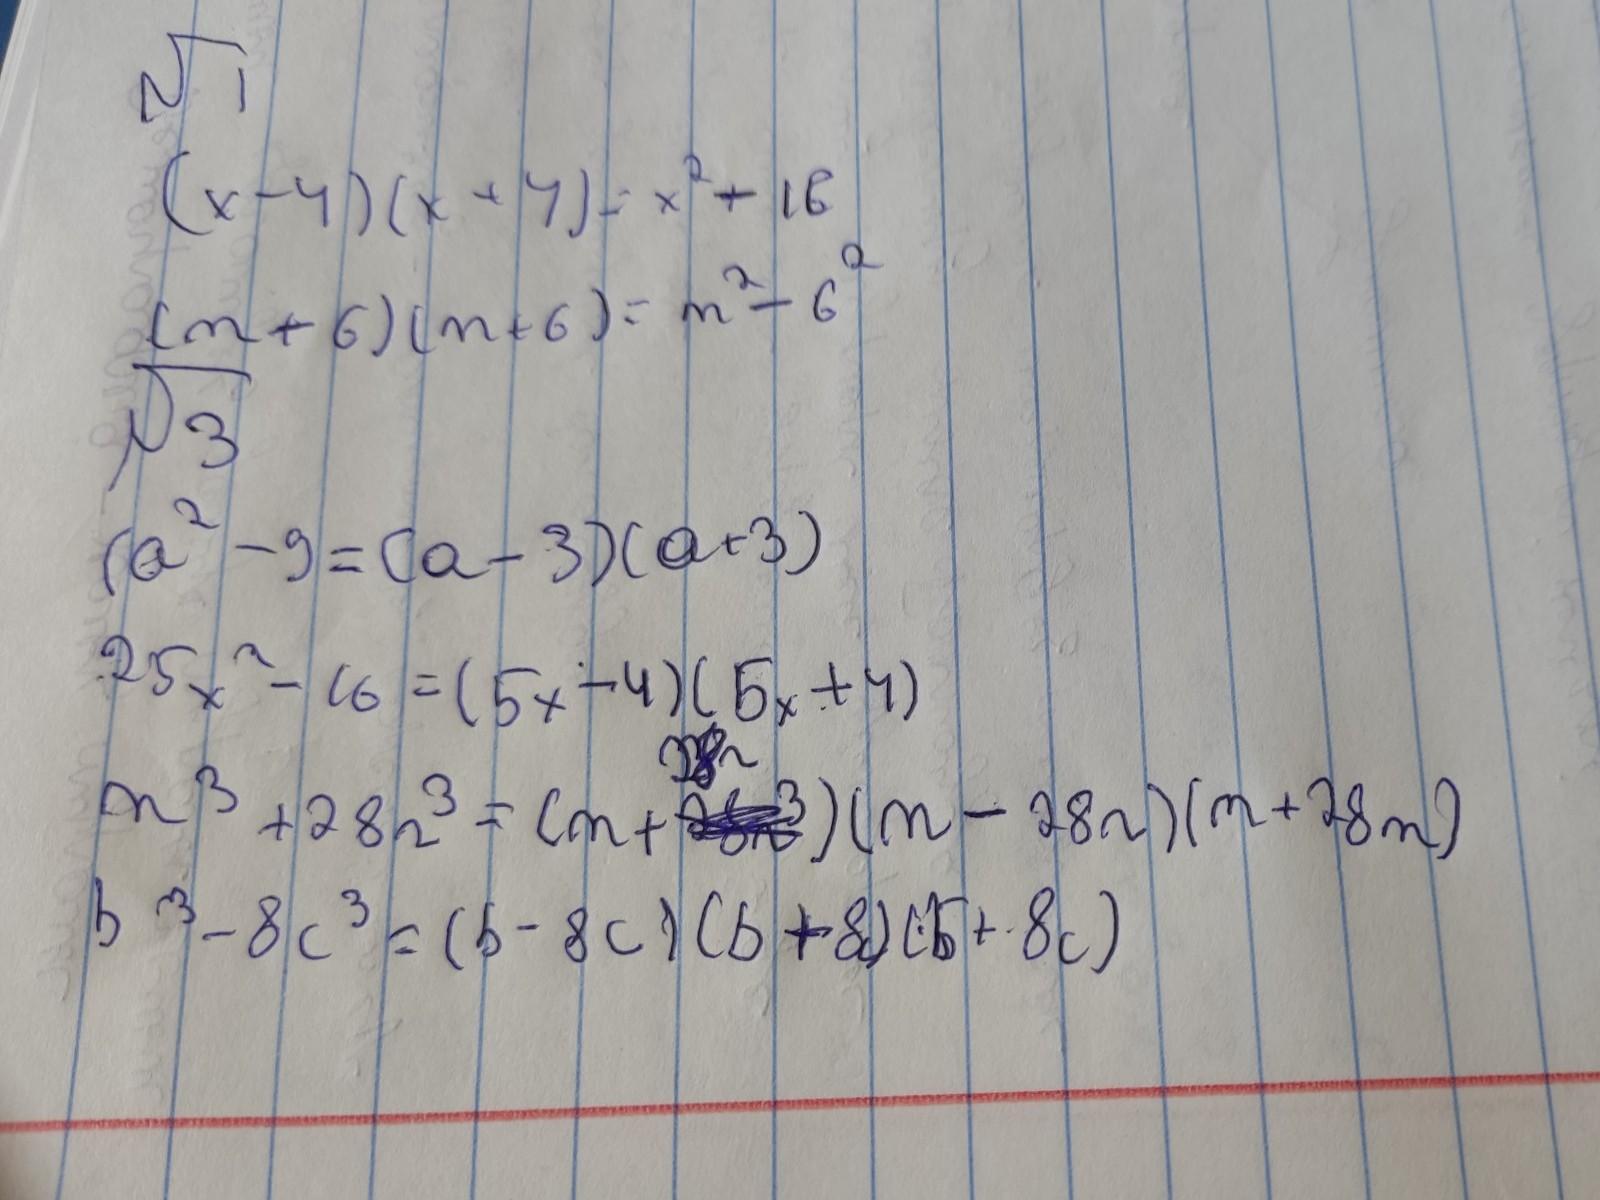 √1
(x-4)(x+4)=x²+16
(m+6)(m+6)=m²-6²
√3
(a²-9=(a-3)(a+3)
25x²-16=(5x-4)(5x+4)
m³+28n³=(m+28n)(m-28n)(m+28n)
b³-8c³=(b-8c)(b+8c)(b+8c)